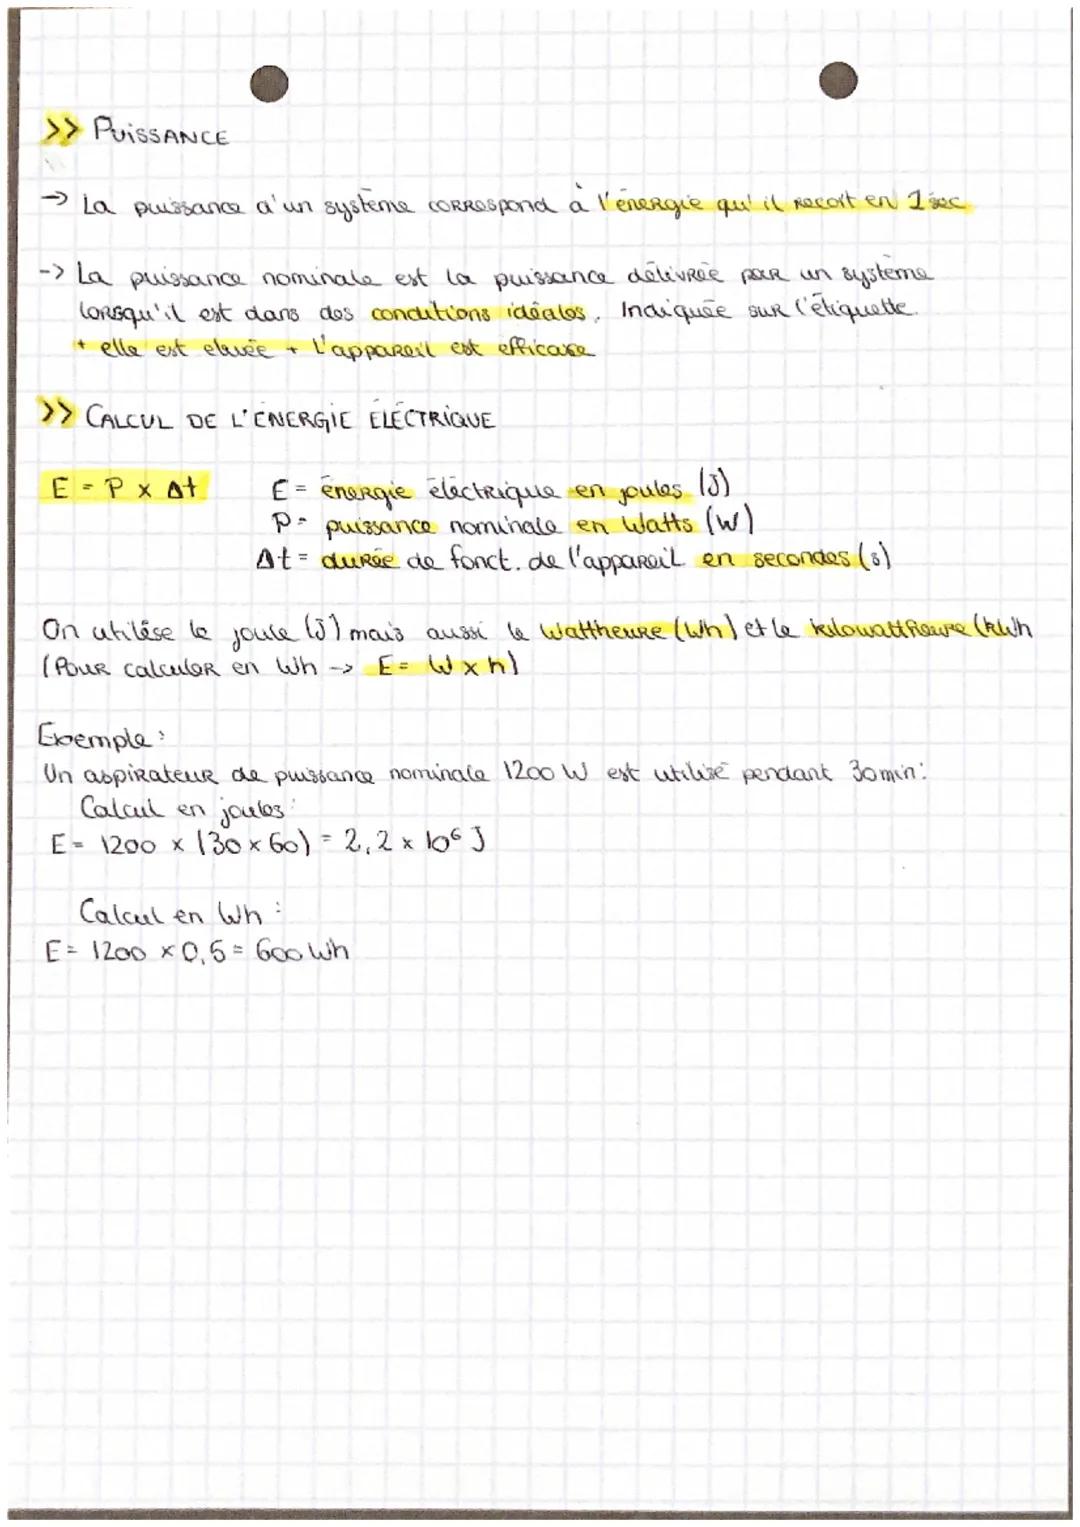 >> PUISSANCE
-> La puissance d'un système correspond à l'énergie qu'il reçoit en 1 sec
-> La puissance nominale est la puissance délivrée par un système
lorsqu'il est dans des conditions idéales. Indiquée sur l'étiquette.
+ elle est elevée + l'appareil est efficace
>> CALCUL DE L'ÉNERGIE ÉLÉCTRIQUE
E = P x Δt
E = énergie éléctrique en joules (J)
P = puissance nominale en Watts (W)
Δt = durée de fonct. de l'appareil en secondes (s)
On utilise le joule (J) mais aussi le Wattheure (Wh) et le kilowattheure (kWh
(Pour calculer en Wh -> E = W x h)
Exemple :
Un aspirateur de puissance nominale 1200 W est utilisé pendant 30 min :
Calcul en joules :
E = 1200 x (30 x 60) = 2,2 x 10⁶ J
Calcul en Wh :
E = 1200 x 0,5 = 600 Wh